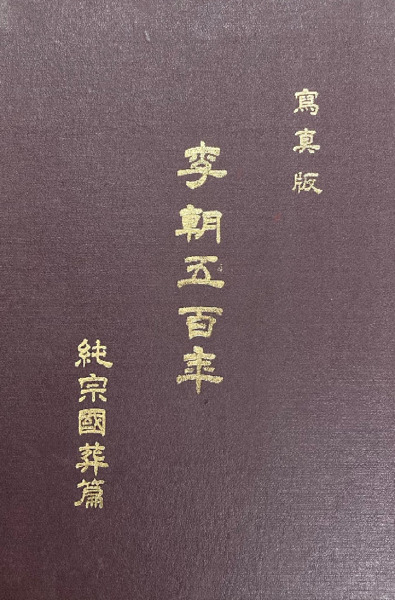 寫真版
李朝五百年
純宗國葬篇